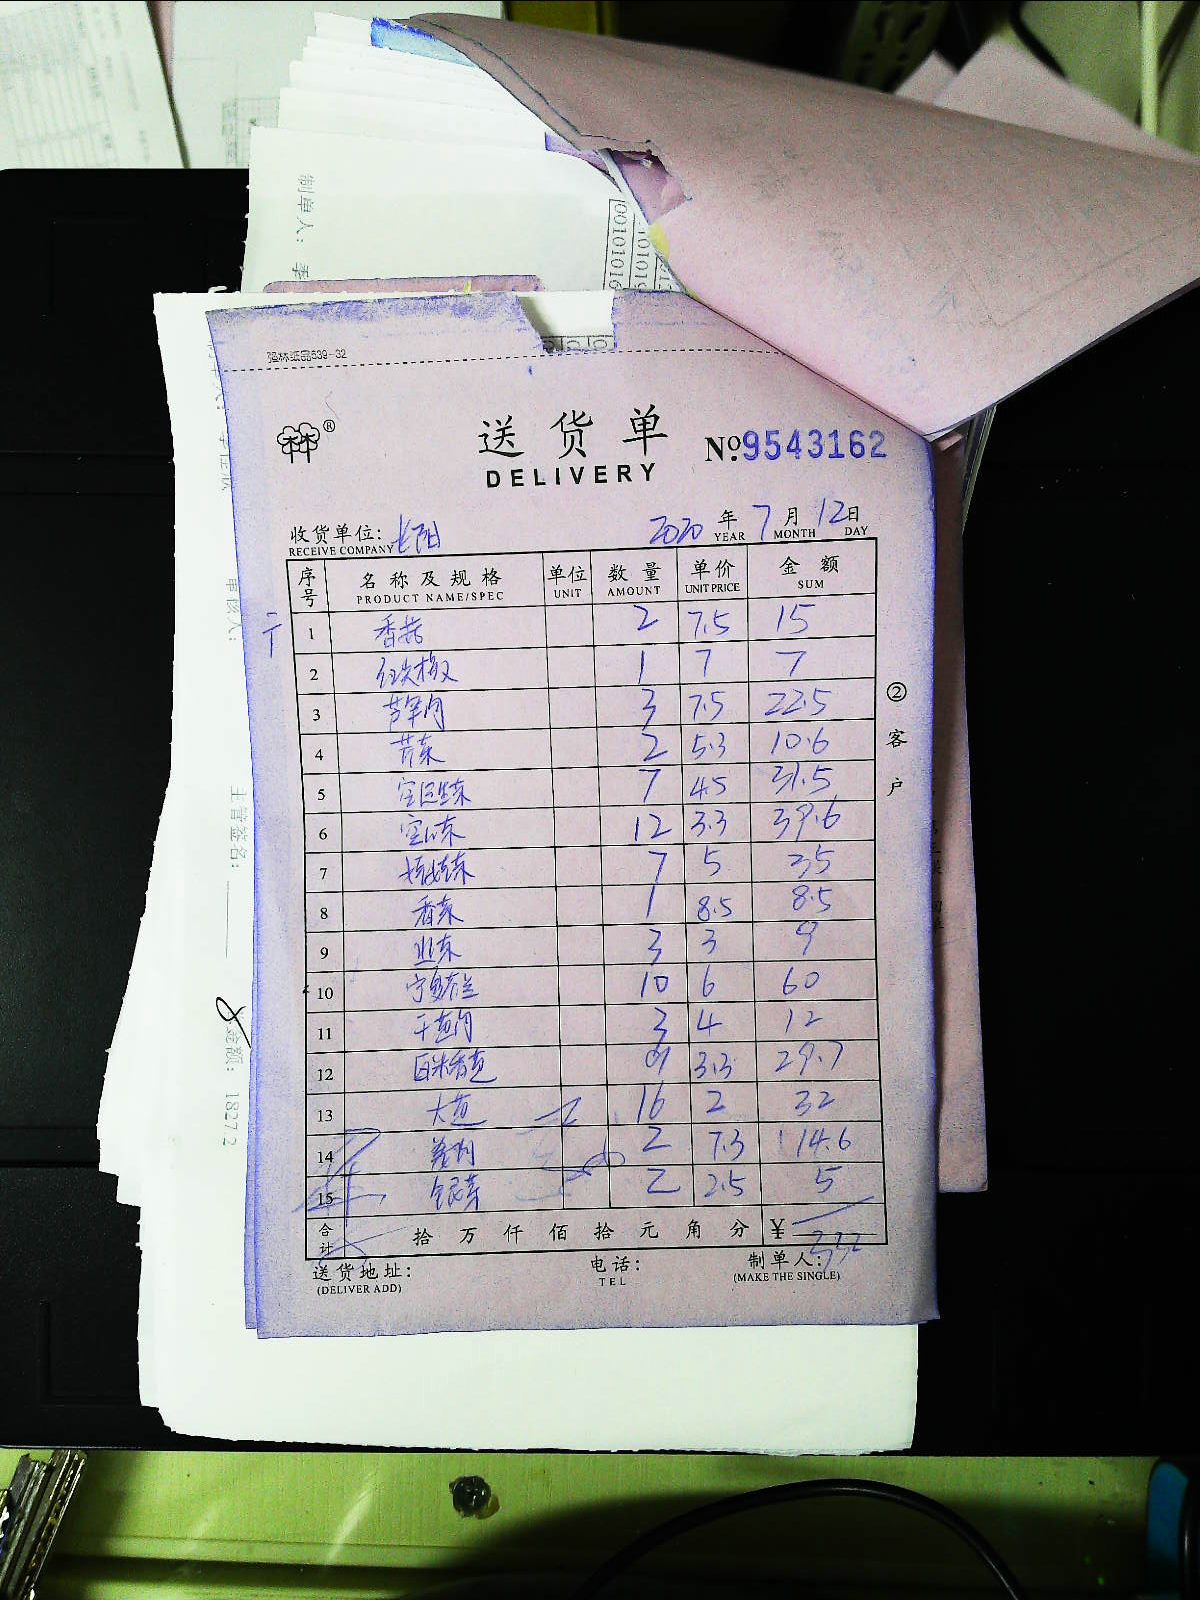 制单人：
00101016
强林纸品639-32
®
送货单
DELIVERY
№9543162
收货单位：长阳
RECEIVE COMPANY
2020年7月12日
YEAR MONTH DAY
序号 名称及规格 单位 数量 单价 金额
PRODUCT NAME/SPEC UNIT AMOUNT UNIT PRICE SUM
1 香菇 2 7.5 15
2 红尖椒 1 7 7
3 3 7.5 22.5
4 芹菜 2 5.3 10.6
5 7 4.5 31.5
6 空心菜 12 3.3 39.6
7 7 5 35
8 香菜 1 8.5 8.5
9 韭菜 3 3 9
10 10 6 60
11 3 4 12
12 9 3.3 29.7
13 大 16 2 32
14 姜 2 7.3 14.6
15 银芽 2 2.5 5
合计 拾万仟佰拾元角分 ¥ 332
送货地址：
(DELIVER ADD)
电话：
TEL
制单人：
(MAKE THE SINGLE)
②客户
审核人：
主管签名：
金额：1827.2